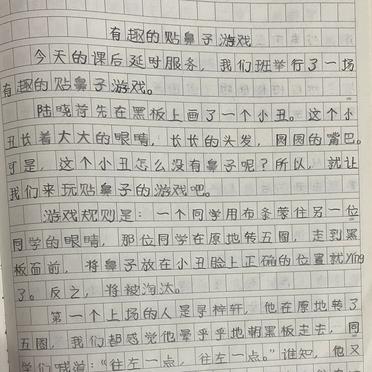 有趣的贴鼻子游戏
今天的课后延时服务，我们班举行了一场
有趣的贴鼻子游戏。
陆晓首先在黑板上画了一个小丑。这个小
丑长着大大的眼睛，长长的头发，圆圆的嘴巴。
可是，这个小丑怎么没有鼻子呢？所以，就让
我们来玩贴鼻子的游戏吧。
游戏规则是：一个同学用布条蒙住另一位
同学的眼睛，那位同学在原地转五圈，走到黑
板面前，将鼻子放在小丑脸上正确的位置就yíng
了。反之，将被淘汰。
第一个上场的人是寻梓轩，他在原地转了
五圈，我们都感觉他晕乎乎地朝黑板走去，同
学们喊道：“往左一点，往左一点。”谁知，他又